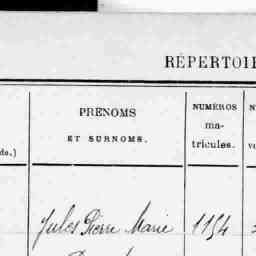 RÉPERTOI
PRÉNOMS
ET SURNOMS.
NUMÉROS
ma-
tricules.
ds.)
Jules Pierre Marie 1154